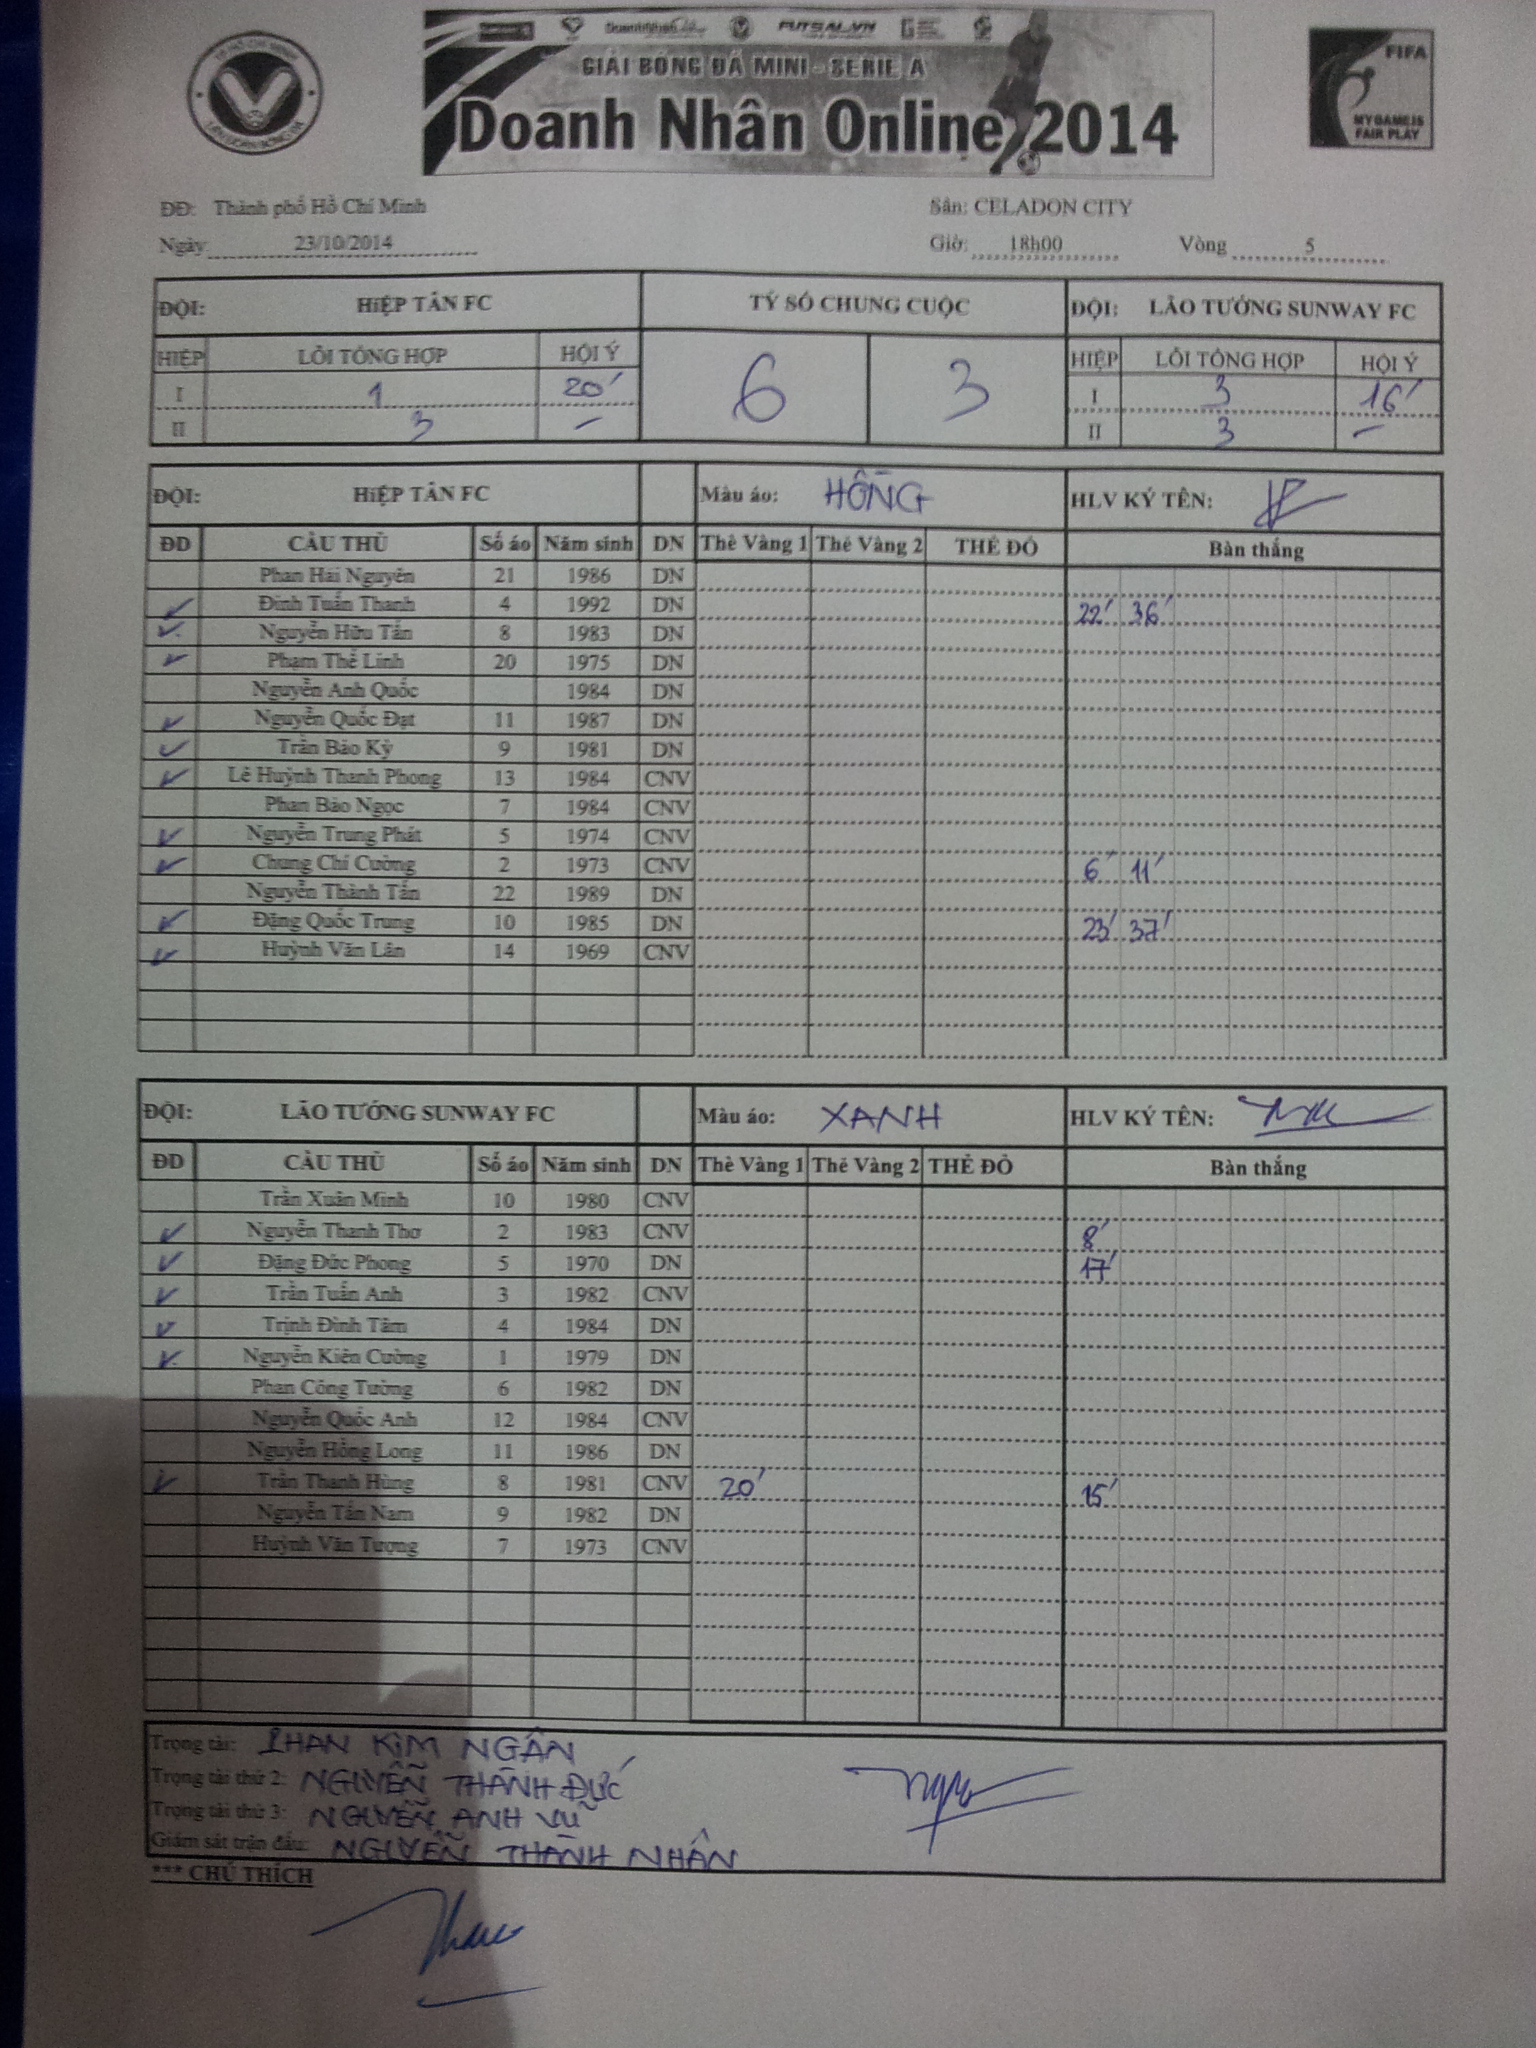 TP HỒ CHÍ MINH
LIÊN ĐOÀN BÓNG ĐÁ
FUTSAL.VN
GIẢI BÓNG ĐÁ MINI - SERIE A
Doanh Nhân Online 2014
FIFA
MY GAME IS
FAIR PLAY
ĐĐ: Thành phố Hồ Chí Minh Sân: CELADON CITY
Ngày 23/10/2014 Giờ: 18h00 Vòng 5
ĐỘI: HiỆP TÂN FC TỶ SỐ CHUNG CUỘC ĐỘI: LÃO TƯỚNG SUNWAY FC
HIỆP LỖI TỔNG HỢP HỘI Ý 6 3 HIỆP LỖI TỔNG HỢP HỘI Ý
I 1 20' I 3 16'
II 3 - II 3 -
ĐỘI: HiỆP TÂN FC Màu áo: HỒNG HLV KÝ TÊN:
ĐD CẦU THỦ Số áo Năm sinh DN Thẻ Vàng 1 Thẻ Vàng 2 THẺ ĐỎ Bàn thắng
Phan Hải Nguyên 21 1986 DN
Đinh Tuấn Thanh 4 1992 DN 22' 36'
Nguyễn Hữu Tấn 8 1983 DN
Phạm Thế Linh 20 1975 DN
Nguyễn Anh Quốc 1984 DN
Nguyễn Quốc Đạt 11 1987 DN
Trần Bảo Kỳ 9 1981 DN
Lê Huỳnh Thanh Phong 13 1984 CNV
Phan Bảo Ngọc 7 1984 CNV
Nguyễn Trung Phát 5 1974 CNV
Chung Chí Cường 2 1973 CNV 6' 11'
Nguyễn Thành Tấn 22 1989 DN
Đặng Quốc Trung 10 1985 DN 23' 37'
Huỳnh Văn Lân 14 1969 CNV
ĐỘI: LÃO TƯỚNG SUNWAY FC Màu áo: XANH HLV KÝ TÊN:
ĐD CẦU THỦ Số áo Năm sinh DN Thẻ Vàng 1 Thẻ Vàng 2 THẺ ĐỎ Bàn thắng
Trần Xuân Minh 10 1980 CNV
Nguyễn Thanh Thơ 2 1983 CNV 8'
Đặng Đức Phong 5 1970 DN 17'
Trần Tuấn Anh 3 1982 CNV
Trịnh Đình Tâm 4 1984 DN
Nguyễn Kiên Cường 1 1979 DN
Phan Công Tường 6 1982 DN
Nguyễn Quốc Anh 12 1984 CNV
Nguyễn Hồng Long 11 1986 DN
Trần Thanh Hùng 8 1981 CNV 20' 15'
Nguyễn Tấn Nam 9 1982 DN
Huỳnh Văn Tượng 7 1973 CNV
Trọng tài: PHAN KIM NGÂN
Trọng tài thứ 2: NGUYỄN THÀNH ĐỨC
Trọng tài thứ 3: NGUYỄN ANH VŨ
Giám sát trận đấu: NGUYỄN THÀNH NHÂN
*** CHÚ THÍCH